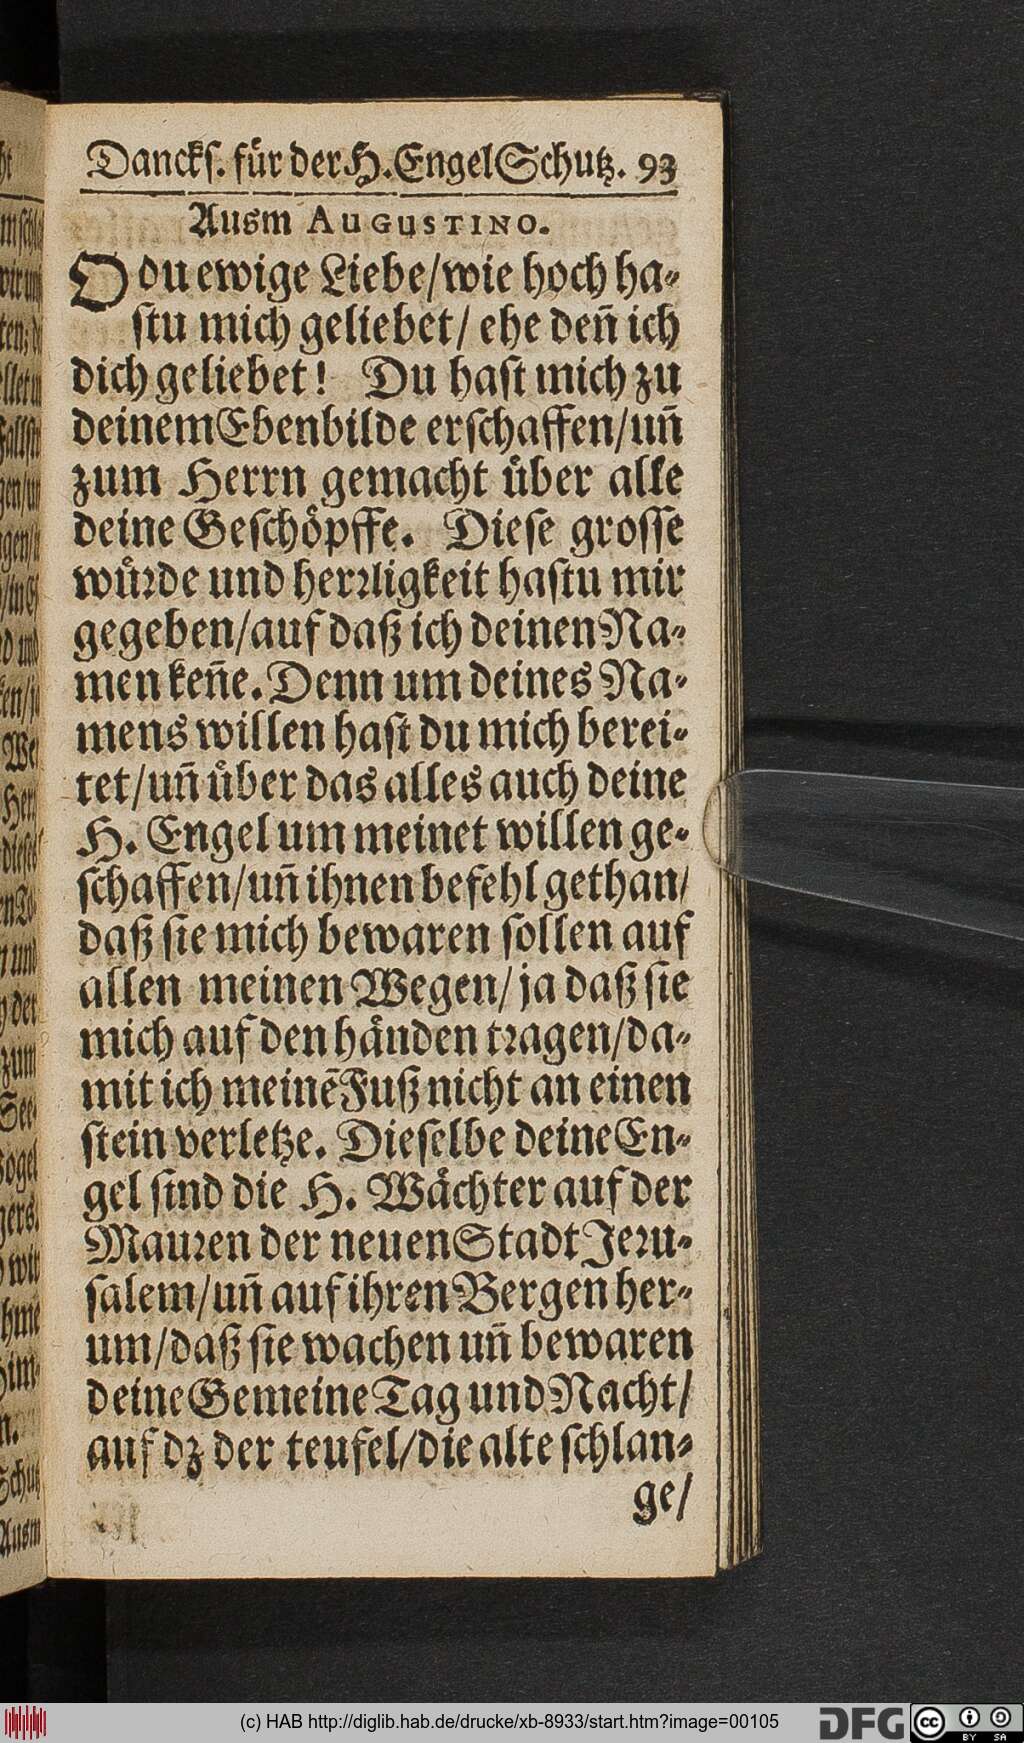 Dancks. für der H. Engel Schutz. 93
Ausm AUGUSTINO.
O du ewige Liebe/ wie hoch ha-
stu mich geliebet/ ehe deñ ich
dich geliebet! Du hast mich zu
deinem Ebenbilde erschaffen/ uñ
zum Herrn gemacht über alle
deine Geschöpffe. Diese grosse
würde und herrligkeit hastu mir
gegeben/ auf daß ich deinen Na-
men keñe. Denn um deines Na-
mens willen hast du mich berei-
tet/ uñ über das alles auch deine
H. Engel um meinet willen ge-
schaffen/ uñ ihnen befehl gethan/
daß sie mich bewaren sollen auf
allen meinen Wegen/ ja daß sie
mich auf den händen tragen/ da-
mit ich meinē Fuß nicht an einen
stein verletze. Dieselbe deine En-
gel sind die H. Wächter auf der
Mauren der neuen Stadt Jeru-
salem/ uñ auf ihren Bergen her-
um/ daß sie wachen uñ bewaren
deine Gemeine Tag und Nacht/
auf dz der teufel/ die alte schlan-
ge/
(c) HAB http://diglib.hab.de/drucke/xb-8933/start.htm?image=00105
DFG
cc BY SA